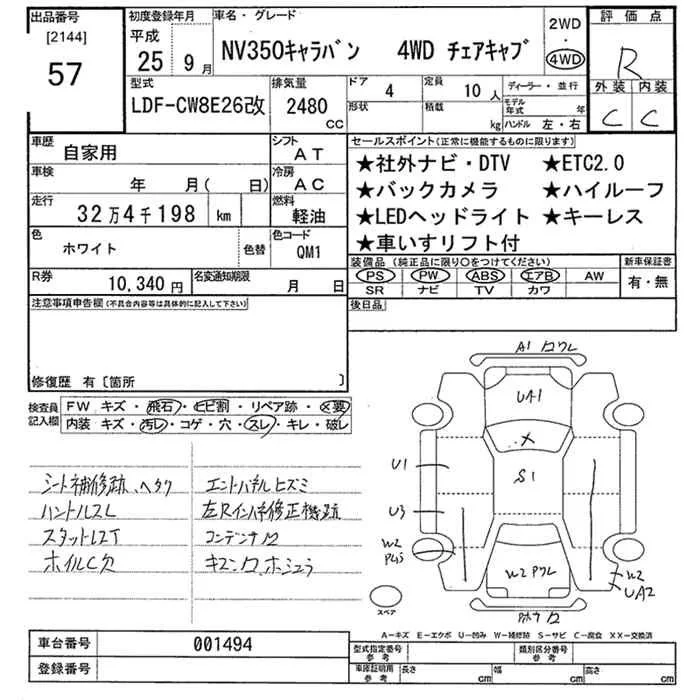 出品番号
[2144]
57
初度登録年月
平成
25 9月
車名・グレード
NV350キャラバン 4WD チェアキャブ
2WD
・
4WD
評価点
R
外装 内装
C C
型式
LDF-CW8E26改
排気量
2480
CC
ドア
4
定員
10 人
ディーラー・並行
形状
積載
kg
モデル年式 年
ハンドル 左・右
車歴
自家用
シフト
AT
車検
年 月( 日)
冷房
AC
走行
32万4千198 km
燃料
軽油
色
ホワイト
色替
色コード
QM1
R券
10,340 円
名変通知期限
月 日
セールスポイント(正常に機能するものに限ります)
★社外ナビ・DTV ★ETC2.0
★バックカメラ ★ハイルーフ
★LEDヘッドライト ★キーレス
★車いすリフト付
装備品(純正品に限り○をつけてください)
新車保証書
PS PW ABS エアB AW
有・無
SR ナビ TV カワ
後日品
注意事項申告欄(不具合内容等は具体的に記入して下さい)
修復歴 有[箇所 ]
検査員記入欄
FW キズ・飛石・ヒビ割・リペア跡・×要
内装 キズ・汚レ・コゲ・穴・スレ・キレ・破レ
シート補修跡、ヘタク
ハンドルスレ
ホイルC欠
コンテナワ
A1 ワレ
UA1
×
S1
U1
U3
W2
W2 ワレ
W2
UA2
スペア
A-キズ E-エクボ U-凹み W-補修跡 S-サビ C-腐食 XX-交換済
車台番号
001494
登録番号
型式指定番号
参考
類別区分番号
参考
車庫証明用
参考
長さ cm 幅 cm 高さ cm